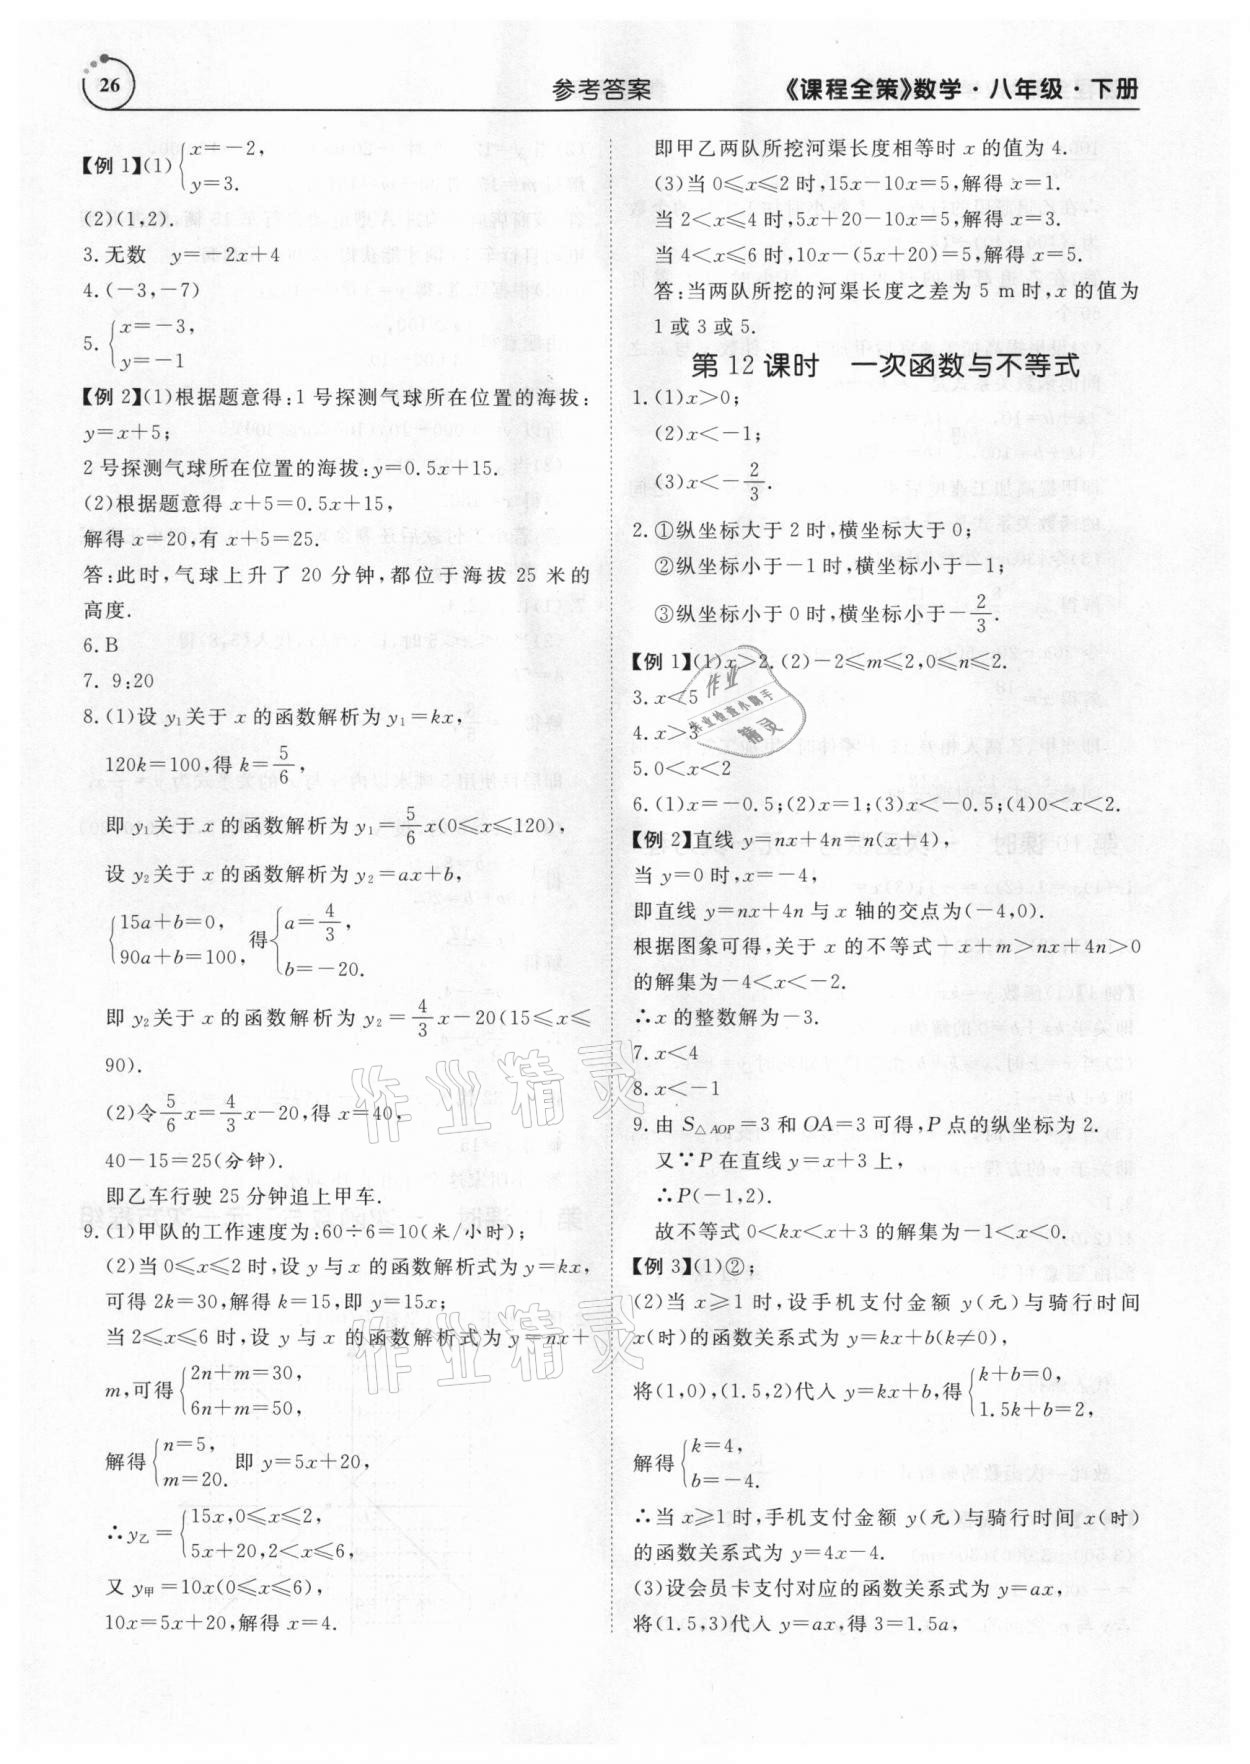 26
参考答案
《课程全策》数学·八年级·下册
【例 1】(1){x=-2,
y=3.
(2)(1,2).
3.无数 y=-2x+4
4.(-3,-7)
5.{x=-3,
y=-1
【例 2】(1)根据题意得:1 号探测气球所在位置的海拔:
y=x+5;
2 号探测气球所在位置的海拔:y=0.5x+15.
(2)根据题意得 x+5=0.5x+15,
解得 x=20,有 x+5=25.
答:此时,气球上升了 20 分钟,都位于海拔 25 米的
高度.
6.B
7. 9:20
8.(1)设 y₁关于 x 的函数解析为 y₁=kx,
120k=100,得 k=5/6,
即 y₁关于 x 的函数解析为 y₁=5/6x(0≤x≤120),
设 y₂关于 x 的函数解析为 y₂=ax+b,
{15a+b=0,
90a+b=100, 得{a=4/3,
b=-20.
即 y₂关于 x 的函数解析为 y₂=4/3x-20(15≤x≤
90).
(2)令5/6x=4/3x-20,得 x=40,
40-15=25(分钟).
即乙车行驶 25 分钟追上甲车.
9.(1)甲队的工作速度为:60÷6=10(米/小时);
(2)当 0≤x≤2 时,设 y 与 x 的函数解析式为 y=kx,
可得 2k=30,解得 k=15,即 y=15x;
当 2≤x≤6 时,设 y 与 x 的函数解析式为 y=nx+
m,可得{2n+m=30,
6n+m=50,
解得{n=5,
m=20. 即 y=5x+20,
∴y乙={15x,0≤x≤2,
5x+20,2<x≤6,
又 y甲=10x(0≤x≤6),
10x=5x+20,解得 x=4.
即甲乙两队所挖河渠长度相等时 x 的值为 4.
(3)当 0≤x≤2 时,15x-10x=5,解得 x=1.
当 2<x≤4 时,5x+20-10x=5,解得 x=3.
当 4<x≤6 时,10x-(5x+20)=5,解得 x=5.
答:当两队所挖的河渠长度之差为 5 m时,x 的值为
1 或 3 或 5.
第 12 课时 一次函数与不等式
1.(1)x>0;
(2)x<-1;
(3)x<-2/3.
2.①纵坐标大于 2 时,横坐标大于 0;
②纵坐标小于-1 时,横坐标小于-1;
③纵坐标小于 0 时,横坐标小于-2/3.
【例 1】(1)x>2.(2)-2≤m≤2,0≤n≤2.
3.x<5
4.x>3
5.0<x<2
6.(1)x=-0.5;(2)x=1;(3)x<-0.5;(4)0<x<2.
【例 2】直线 y=nx+4n=n(x+4),
当 y=0 时,x=-4,
即直线 y=nx+4n 与 x 轴的交点为(-4,0).
根据图象可得,关于 x 的不等式-x+m>nx+4n>0
的解集为-4<x<-2.
∴x 的整数解为-3.
7.x<4
8.x<-1
9.由 S△AOP=3 和 OA=3 可得,P 点的纵坐标为 2.
又∵P 在直线 y=x+3 上,
∴P(-1,2).
故不等式 0<kx<x+3 的解集为-1<x<0.
【例 3】(1)②;
(2)当 x≥1 时,设手机支付金额 y(元)与骑行时间
x(时)的函数关系式为 y=kx+b(k≠0),
将(1,0),(1.5,2)代入 y=kx+b,得{k+b=0,
1.5k+b=2,
解得{k=4,
b=-4.
∴当 x≥1 时,手机支付金额 y(元)与骑行时间 x(时)
的函数关系式为 y=4x-4.
(3)设会员卡支付对应的函数关系式为 y=ax,
将(1.5,3)代入 y=ax,得 3=1.5a,
作业精灵
作业精灵
作业
作业检查小助手
精灵